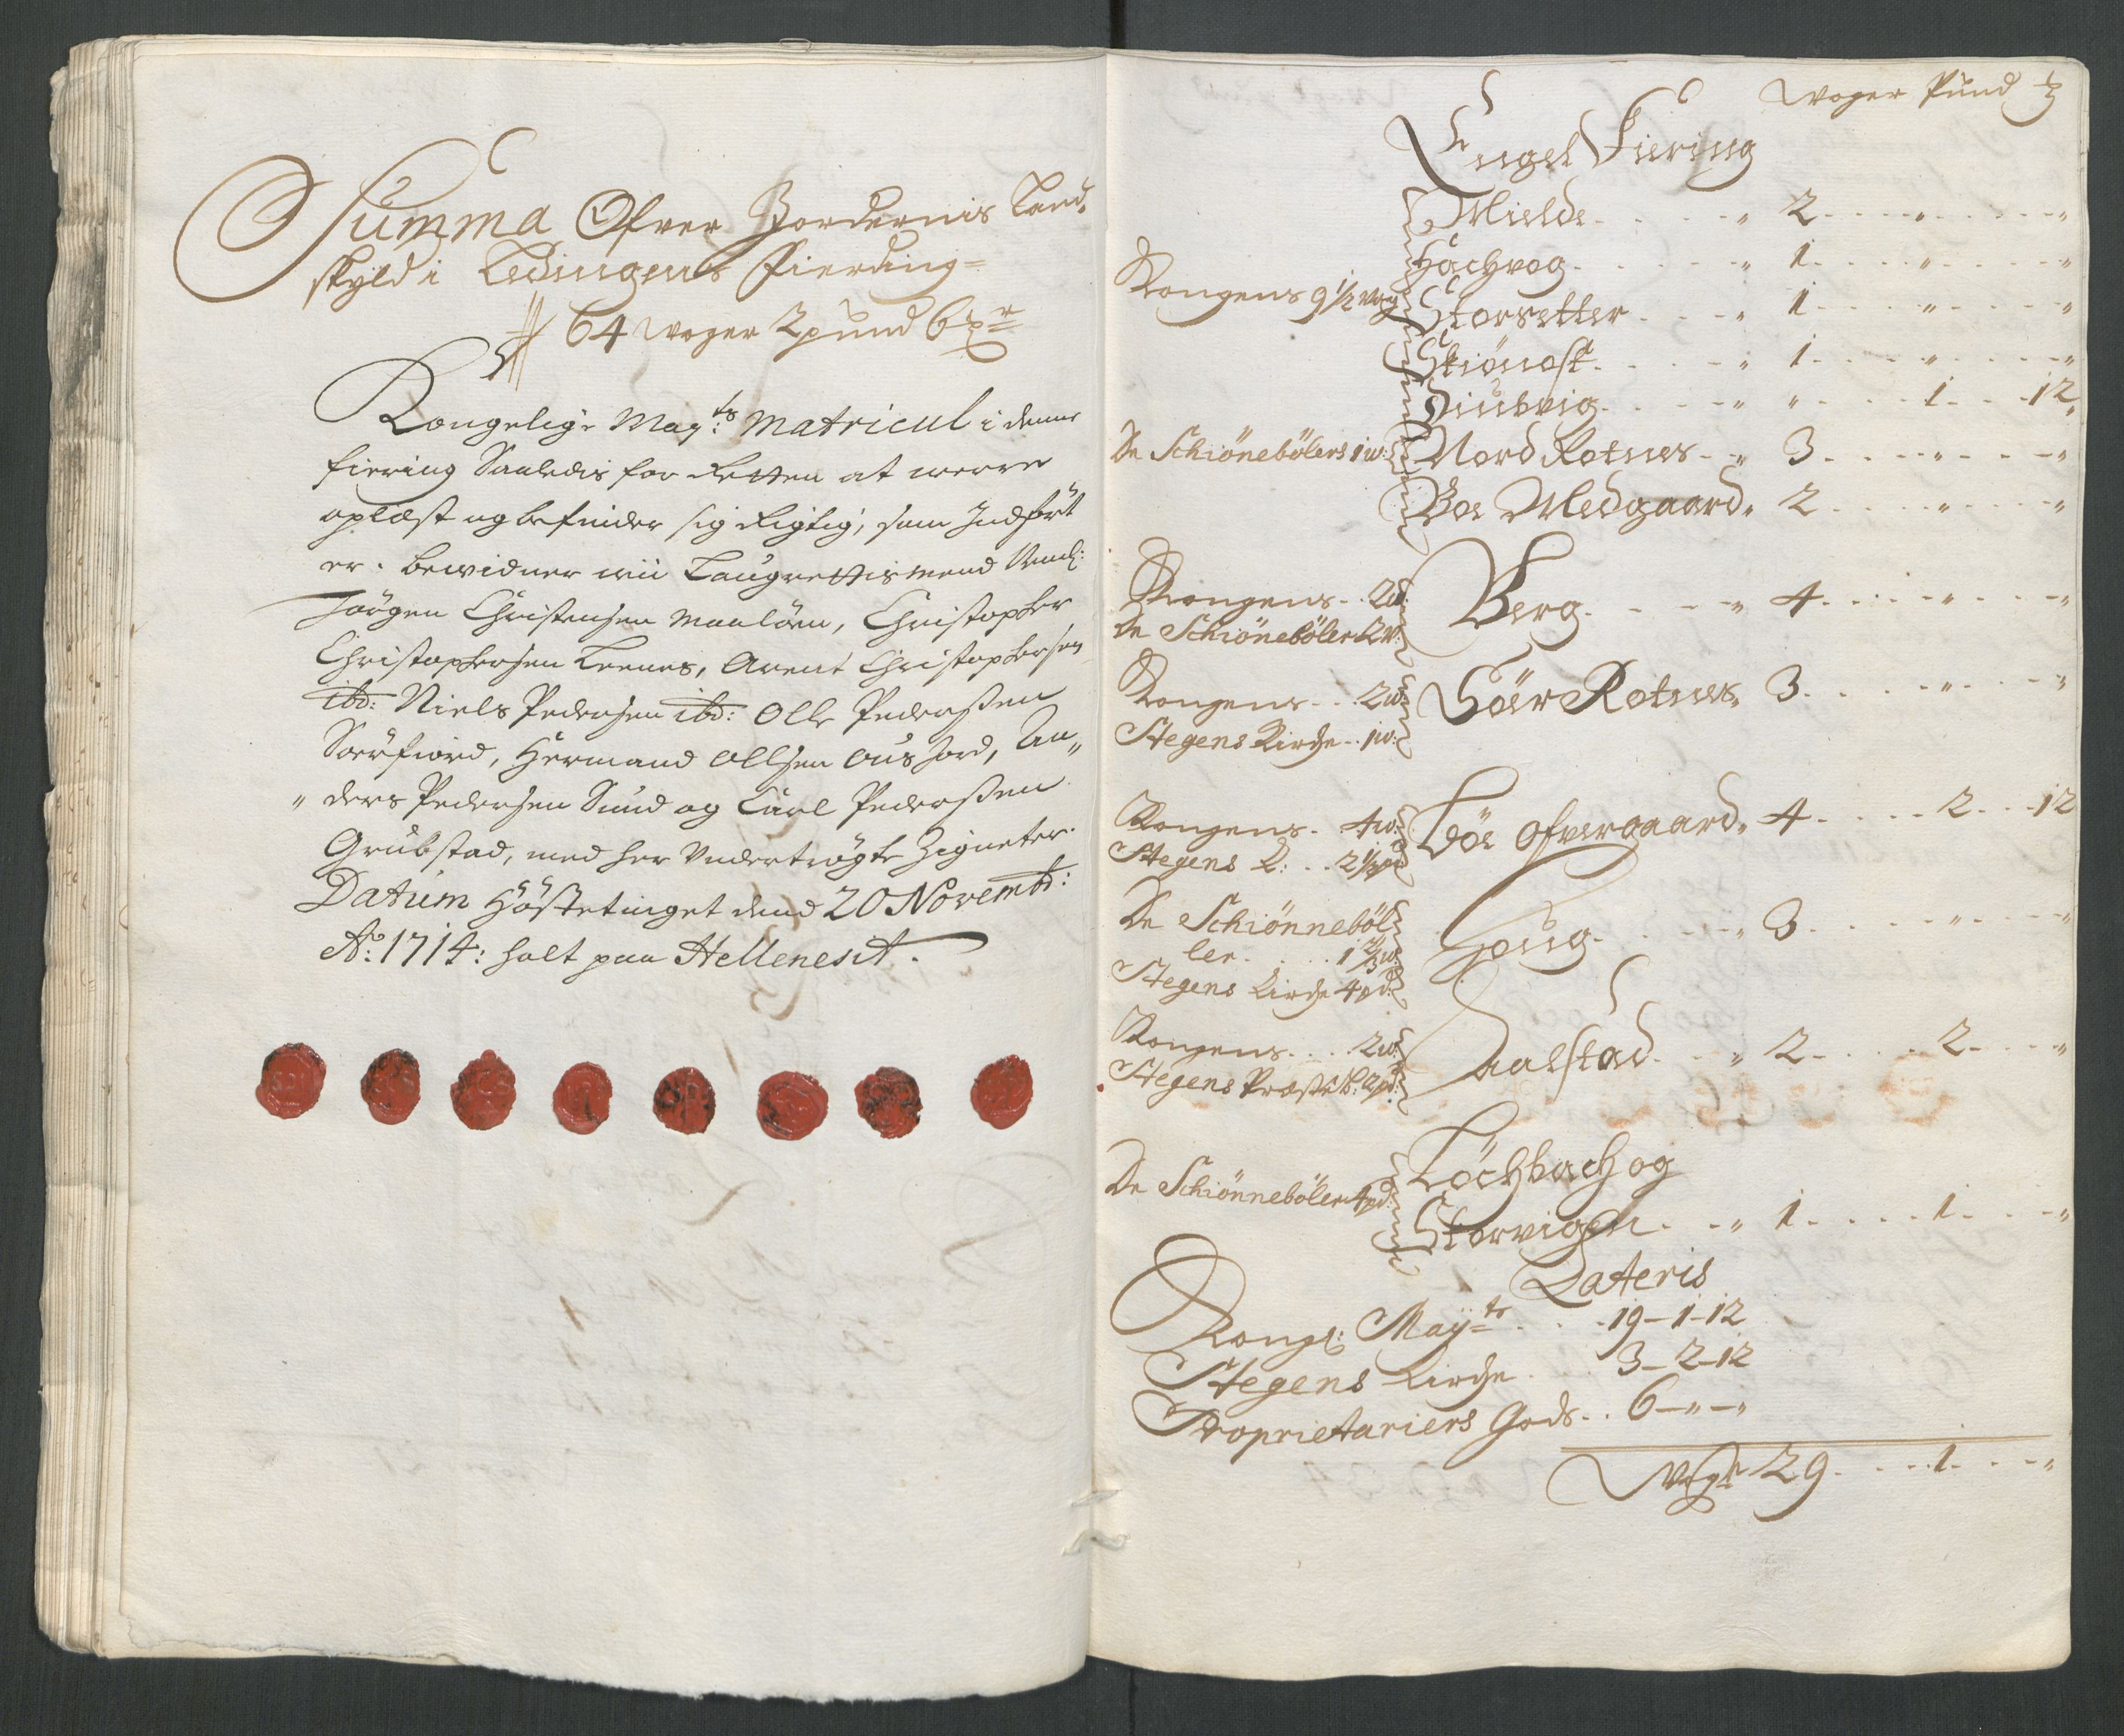 Summa Ofver Jordernis Land„
skyld i Lødingens Fierding
64 woger 2 pund 6
Kongelige May:ts Matricul i denne
fiering Saaledis for Retten at werre
oplæst og befindes sig Rigtig, som Indfört
er. bewidner wii Laugrettismend Nembl:
Jörgen Christensen Maalöen, Christopher
Christophersen Leenes, Arent Christophersen
ibd: Niels Pedersen ibd: Olle Pederßen
Soerfiord, Hermand Ollsen Ausfiord, An„
„ders Pedersen Sund og Carl Pederßen
Grubstad, med her Undertrögte Zigneter.
Datum Hößtetinget dend 20 Novembr:
Ao: 1714: holt paa Hellenesit.
Woger Pund
Engel Fiering
Mielde „ 2 „ „
Hachvog „ 1 „ „
Kongens 9 1/2 wog
Storsetter „ 1 „ „
Skiönost „ 1 „ „
Diubvig „ „ 1 12„
De Schiönebölers 1 w: Nord Rotnes „ 3 „ „
Boe Medgaard „ 2 „ „
Kongens 2 w:
De Schiöneböler 2 w: Berg „ 4 „ „
Kongens 2 w:
Stegens Kirche 1 w: Söer Rotnes „ 3 „ „
Kongens 4 w:
Stegens K: 2 1/2 pd Böe Ofvergaard „ 4 2 12
De Schiönneböl
ler 1 2/3 w:
Stegens Kirche 4 pd: Houg „ 3 „ „
Kongens 2 w:
Stegens Præste B: 2 pd: Aalstad „ 2 2 „
De Schiönneböler 4 pd: Löchbach og
Storvigen „ 1 1 „
Lateris
Kongl: Mayts 19-1-12
Stegens Kirche 3-2-12
Proprietariers Gods 6-„-„
Wogr 29 1 „